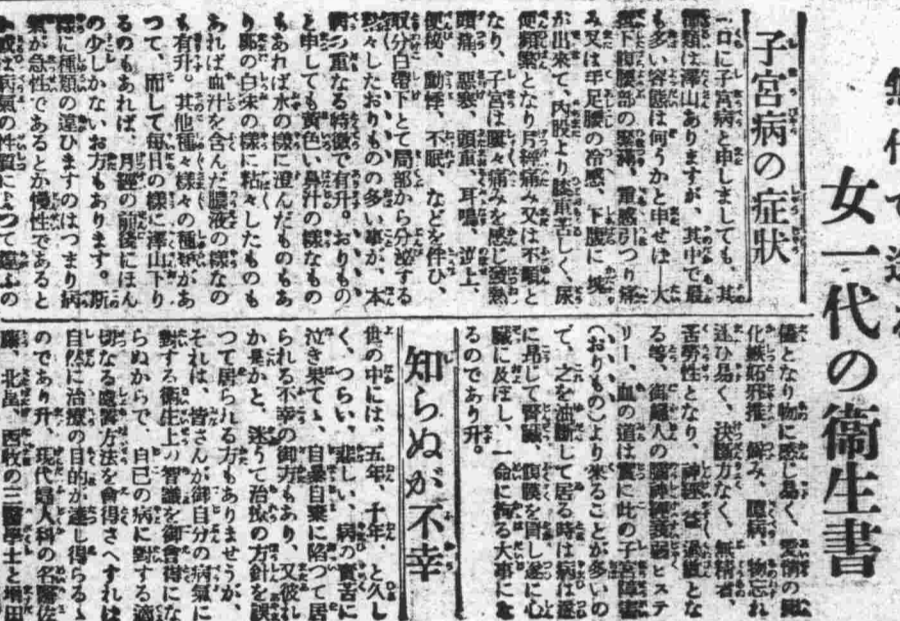 女一代の衞生書
子宮病の症狀
一口に子宮病と申しましても、其
種類は澤山ありますが、其中で最
も多い容態は何うかと申せば―大
下腹部の緊縛、重感引つり痛
み又は手足腰の冷感、下腹に塊
が出來て、內股より膝重苦しく、尿
便頻繁となり月經痛み又は不順と
なり、子宮は屢々痛みを感じ發熱
頭痛、惡寒、頭重、耳鳴、逆上、
便秘、動悸、不眠、などを伴ひ、
取分白帶下とて局部から分泌する
黏々したおりものの多い事が、本
病の重なる特徵で有升。おりもの
と申しても黃色い鼻汁の樣なもの
もあれば水の樣に澄んだものもあ
り卵の白味の樣に粘々したものも
あれば血汁を含んだ膿液の樣なの
も有升。其他種々樣々の種類があ
つて、而して每日の樣に澤山下り
るのもあれば、月經の前後にほん
の少しかないお方もあります。斯
樣に種類の違ひますのはつまり病
氣が急性であるとか慢性であると
か或は病氣の性質によつて違ふの
優となり物に感じ易く、愛情の
化嫉妬邪推、僻み、臆病、物忘れ
迷ひ易く、決斷力なく、無精者、
苦勞性となり、神經、過敏とな
る等、御婦人の腦神經衰弱ヒステ
リー、血の道は實に此の子宮障害
(おりもの)より來ることが多いの
で、之を油斷して居る時は病は遂
に昂して腎臟、腹膜を冒し遂に心
臟に及ぼし、一命に拘る大事にな
るのであり升。
知らぬが不幸
世の中には、五年、十年、と久し
く、つらい、悲しい、病の實苦に
泣き果てゝ、自暴自棄に陷つて居
られる不幸の御方もあり、又彼れ
か是かと、迷うて治療の方針を誤
つて居られる方もありませうが、
それは、皆さんが御自分の病氣に
對する衞生上の智識を御會得にな
らぬからで、自己の病に對する適
切なる處置方法を會得さへすれば
自然に治療の目的が達し得らるゝ
のであり升、現代婦人科の名醫佐
藤、北畠、西牧の三醫學士と增田